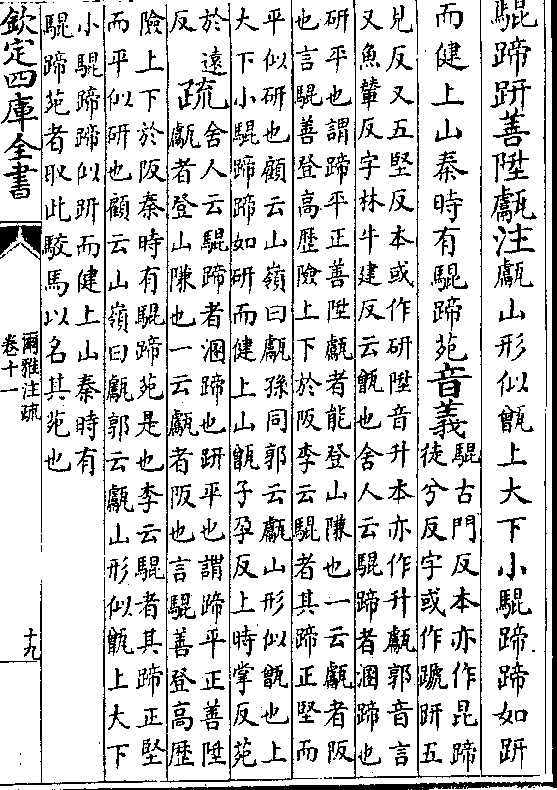 騉蹄趼善陞甗注甗山形似甑上大下小騉蹄蹄如趼
而健上山秦時有騉蹄苑音義
騉古門反本亦作昆蹄
徒兮反字或作蹏趼五
見反又五堅反本或作研陞音升本亦作升甗郭音言
又魚輦反字林牛建反云甑也舍人云騉蹄者溷蹄也
研平也謂蹄平正善陞甗者能登山隒也一云甗者阪
也言騉善登高歷險上下於阪李云騉者其蹄正堅而
平似研也顧云山嶺曰甗孫同郭云甗山形似甑也上
大下小騉蹄蹄如研而健上山甑子孕反上時掌反苑
於遠
反
疏
舍人云騉蹄者溷蹄也趼平也謂蹄平正善陞
甗者登山隒也一云甗者阪也言騉善登高歷
險上下於阪秦時有騉蹄苑是也李云騉者其蹄正堅
而平似研也顧云山嶺曰甗郭云甗山形似甑上大下
小騉蹄蹄似趼而健上山秦時有
騉蹄苑者取此駮馬以名其苑也
欽定四庫全書
爾雅注疏
卷十一
十九